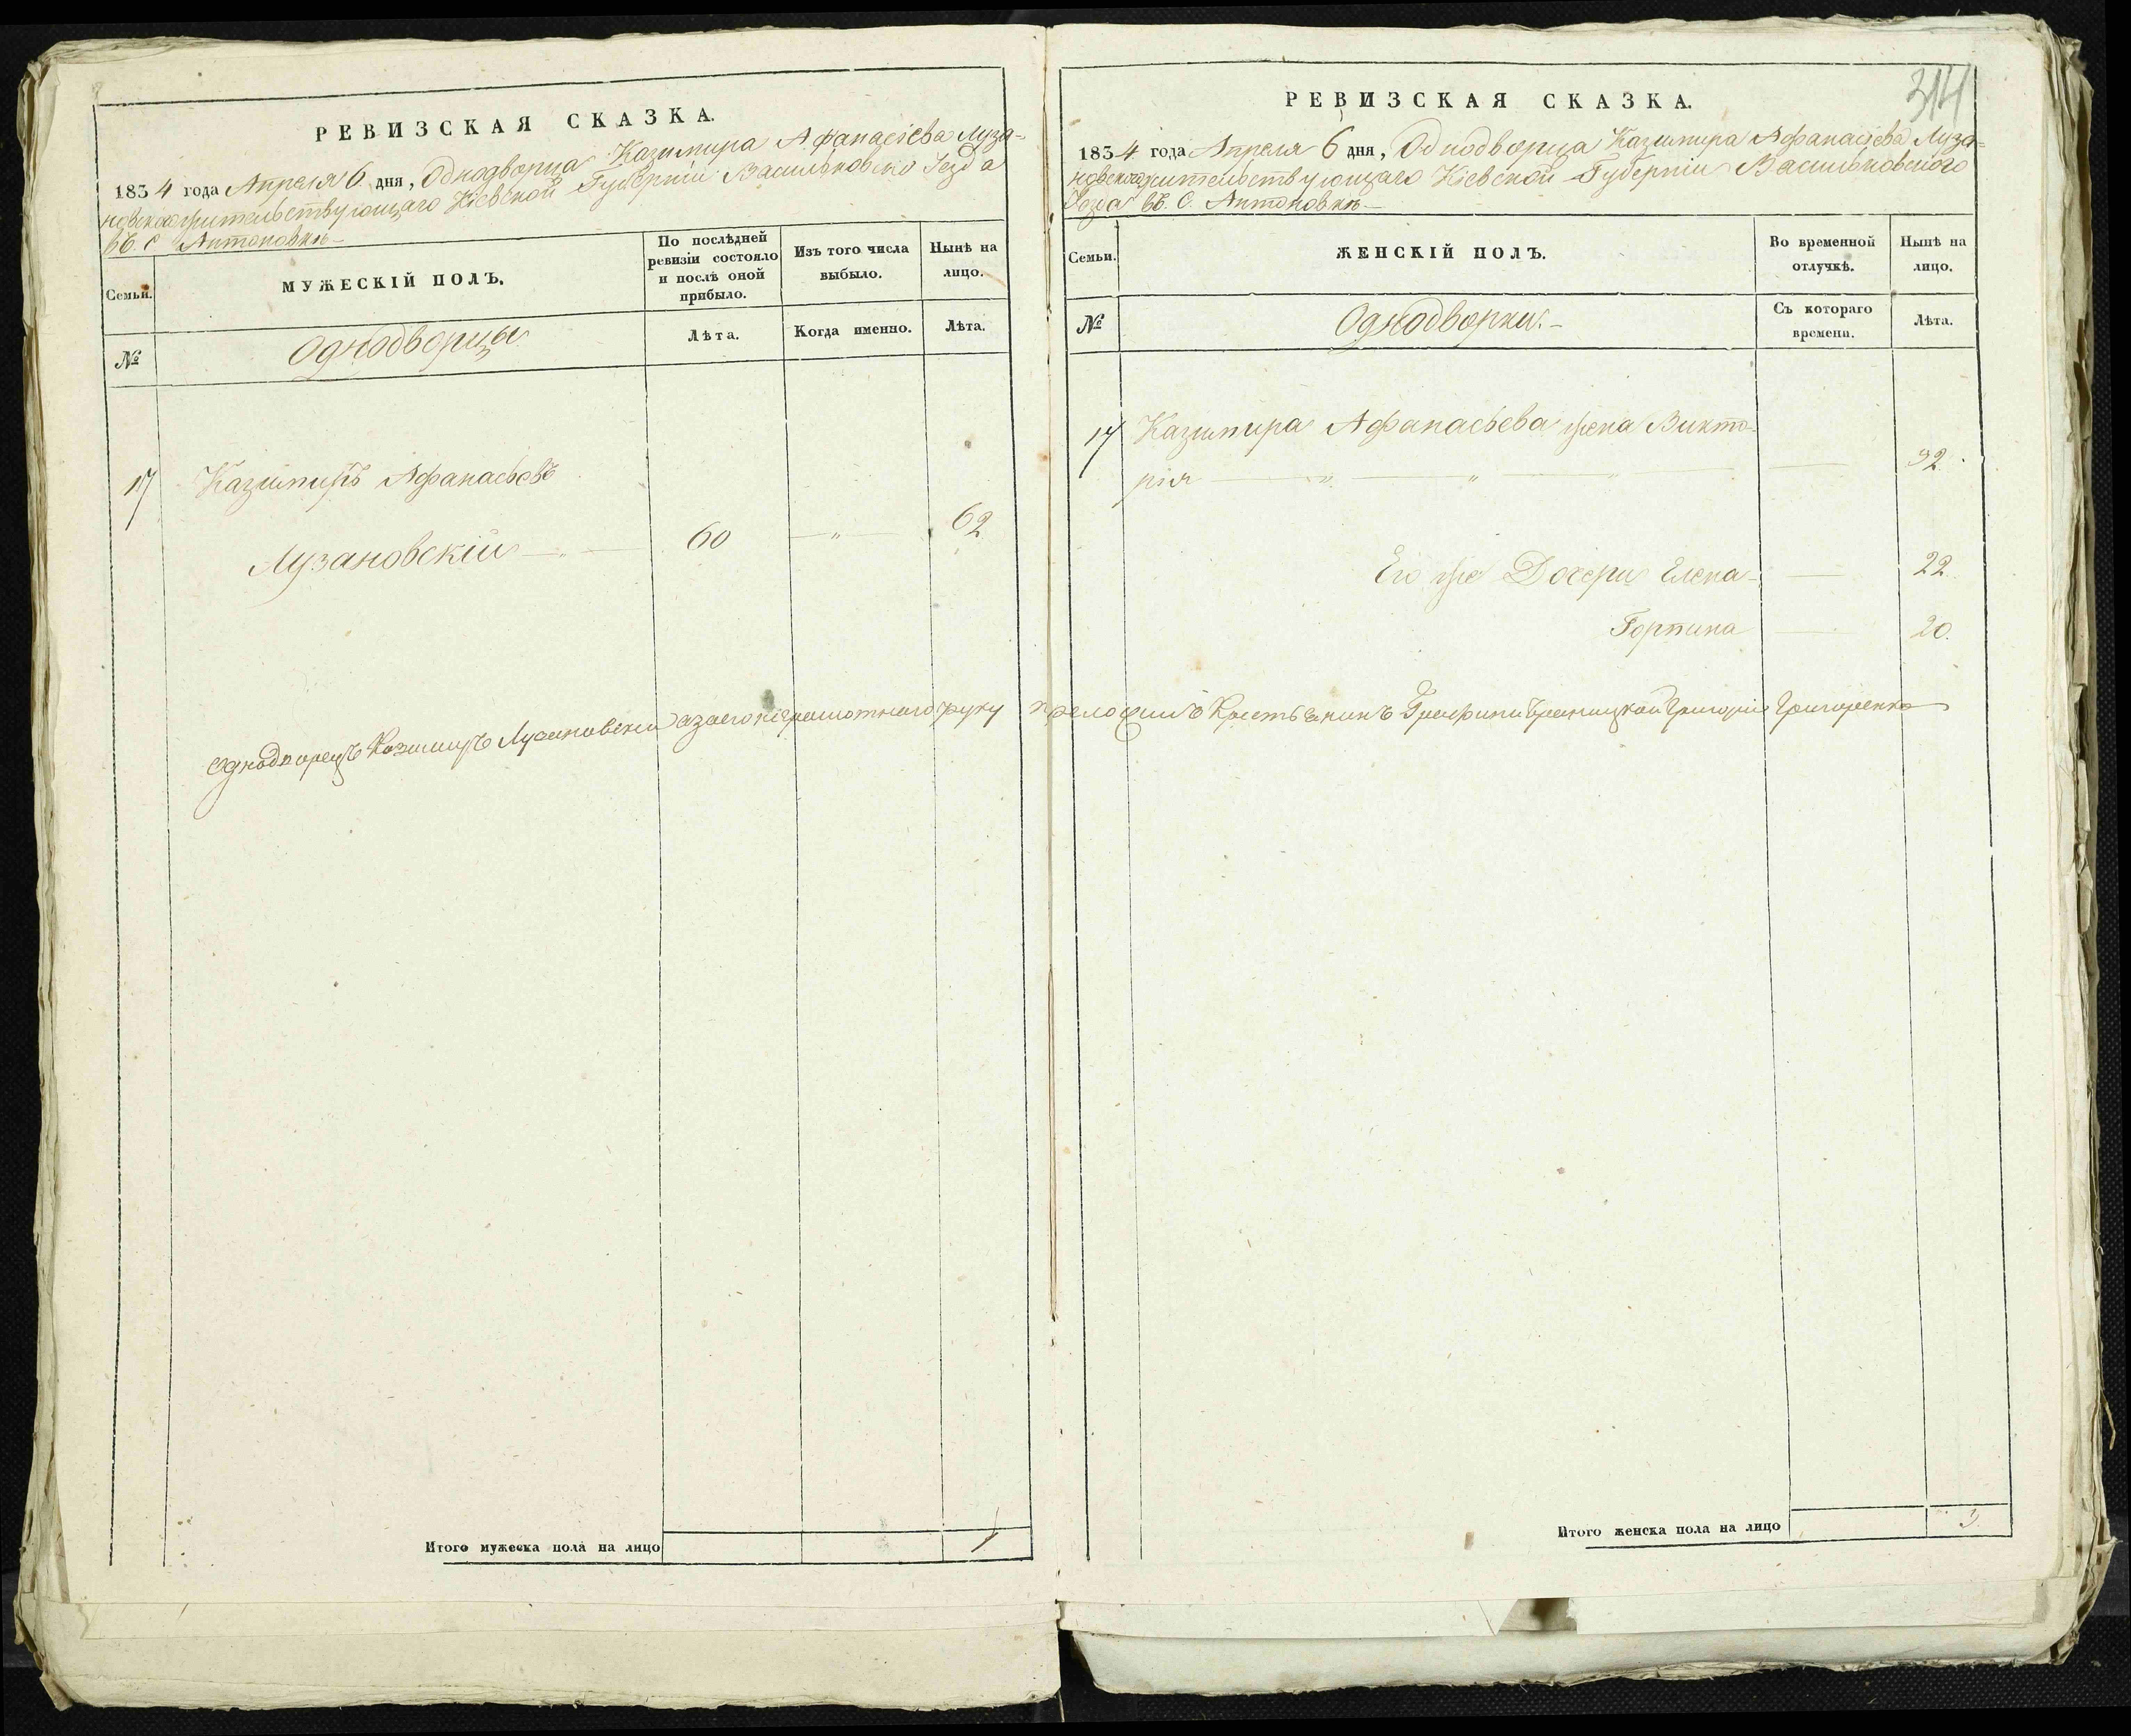 РЕВИЗСКАЯ СКАЗКА.
1834 года Апреля 6 дня, Однодворца Казимира Афанасіева Луза-
новскаго жительствующаго Кіевской Губерніи Васильковско Уезда
въ С Антоновкѣ
Семьи.
МУЖЕСКІЙ ПОЛЪ.
По послѣдней
ревизіи состояло
и послѣ оной
прибыло.
Изъ того числа
выбыло.
Нынѣ на
лицо.
№
Однодворцы
Лѣта.
Когда именно.
Лѣта.
17 Казимиръ Афанасьевъ
Лузановскій — „ — 60 — „ — 62
Итого мужеска пола на лицо 1
314
РЕВИЗСКАЯ СКАЗКА.
1834 года Апреля 6 дня, Однодворца Казимира Афанасіева Луза-
новскаго жительствующаго Кіевской Губерніи Васильковского
Уезда въ С. Антоновкѣ
Семьи.
ЖЕНСКІЙ ПОЛЪ.
Во временной
отлучкѣ.
Нынѣ на
лицо.
№
Однодворки.
Съ котораго
времени.
Лѣта.
17 Казимира Афанасьева жена Викто-
рія — „ — „ — „ — 32
Его же Дочери Елена — 22
Горпина — 20.
Однодворецъ Казимиръ Лузановскій азаего неграмотнаго руку преложилъ Крестьянинъ Графини Браницкой Григорій Григоренко
Итого женска пола на лицо 3